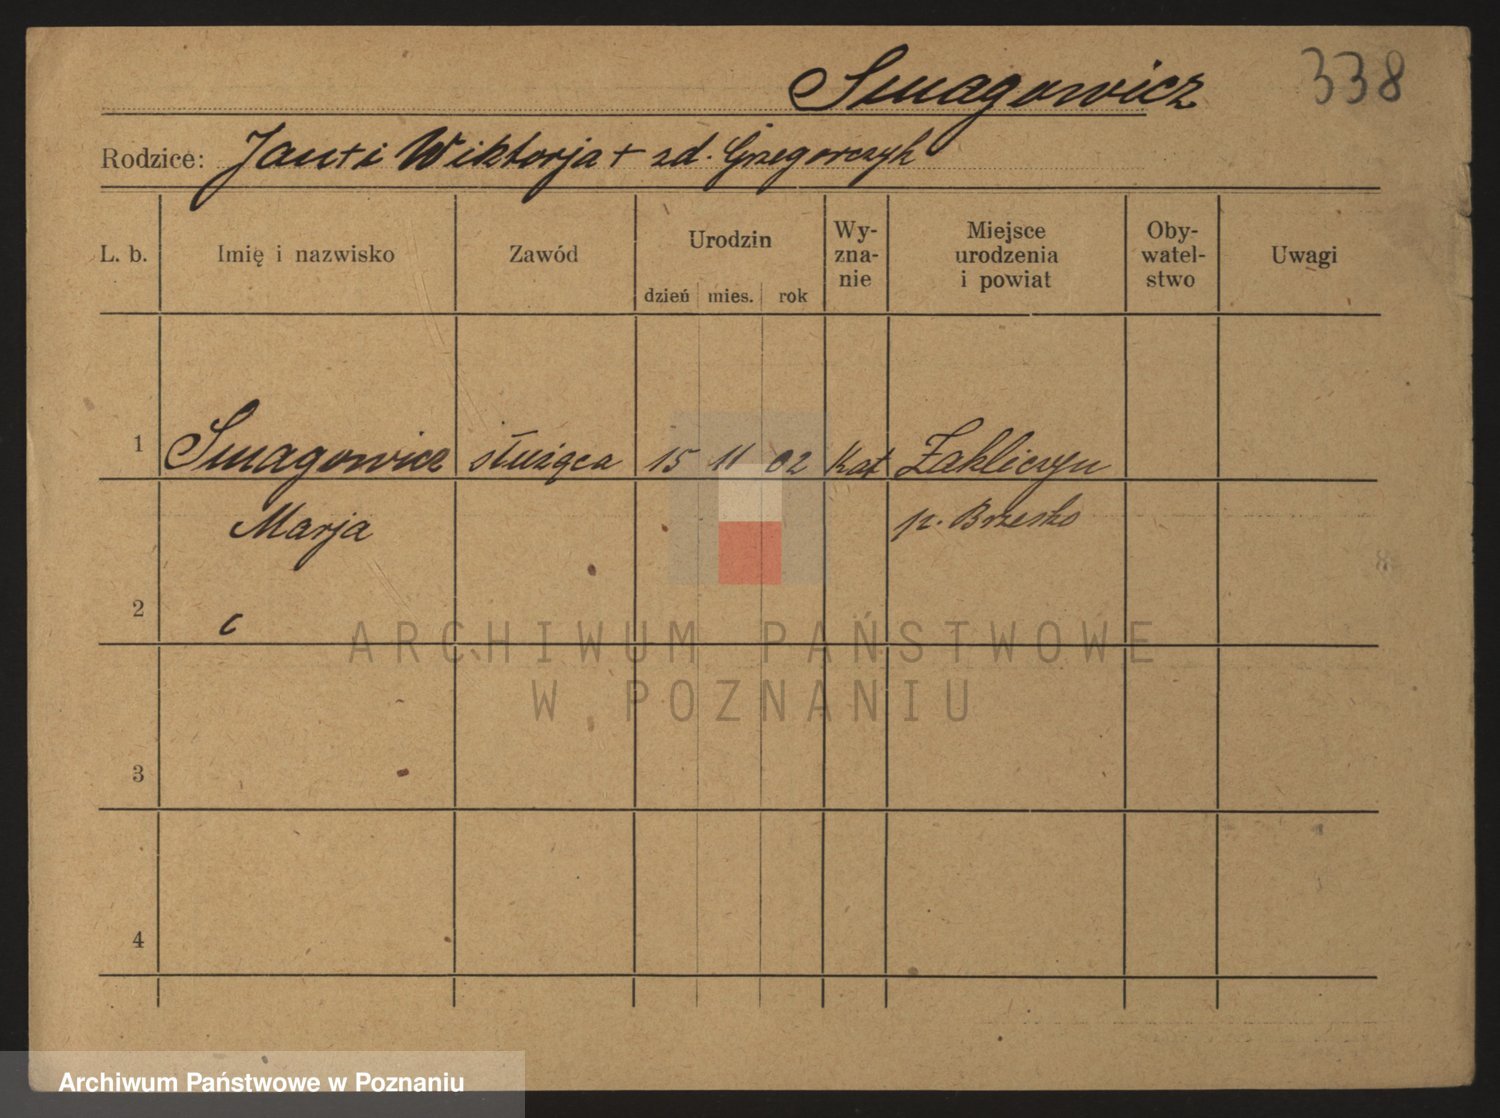 Smagowicz 338
Rodzice: Jan + i Wiktorja + zd. Grzegorczyk
L. b. Imię i nazwisko Zawód Urodzin Wy-zna-nie Miejsce urodzenia i powiat Oby-watel-stwo Uwagi
dzień mies. rok
1 Smagowicz służąca 15 11 02 Kat Zakliczyn
Marja p. Brzesko
2 c
3
4
ARCHIWUM PAŃSTWOWE
W POZNANIU
Archiwum Państwowe w Poznaniu